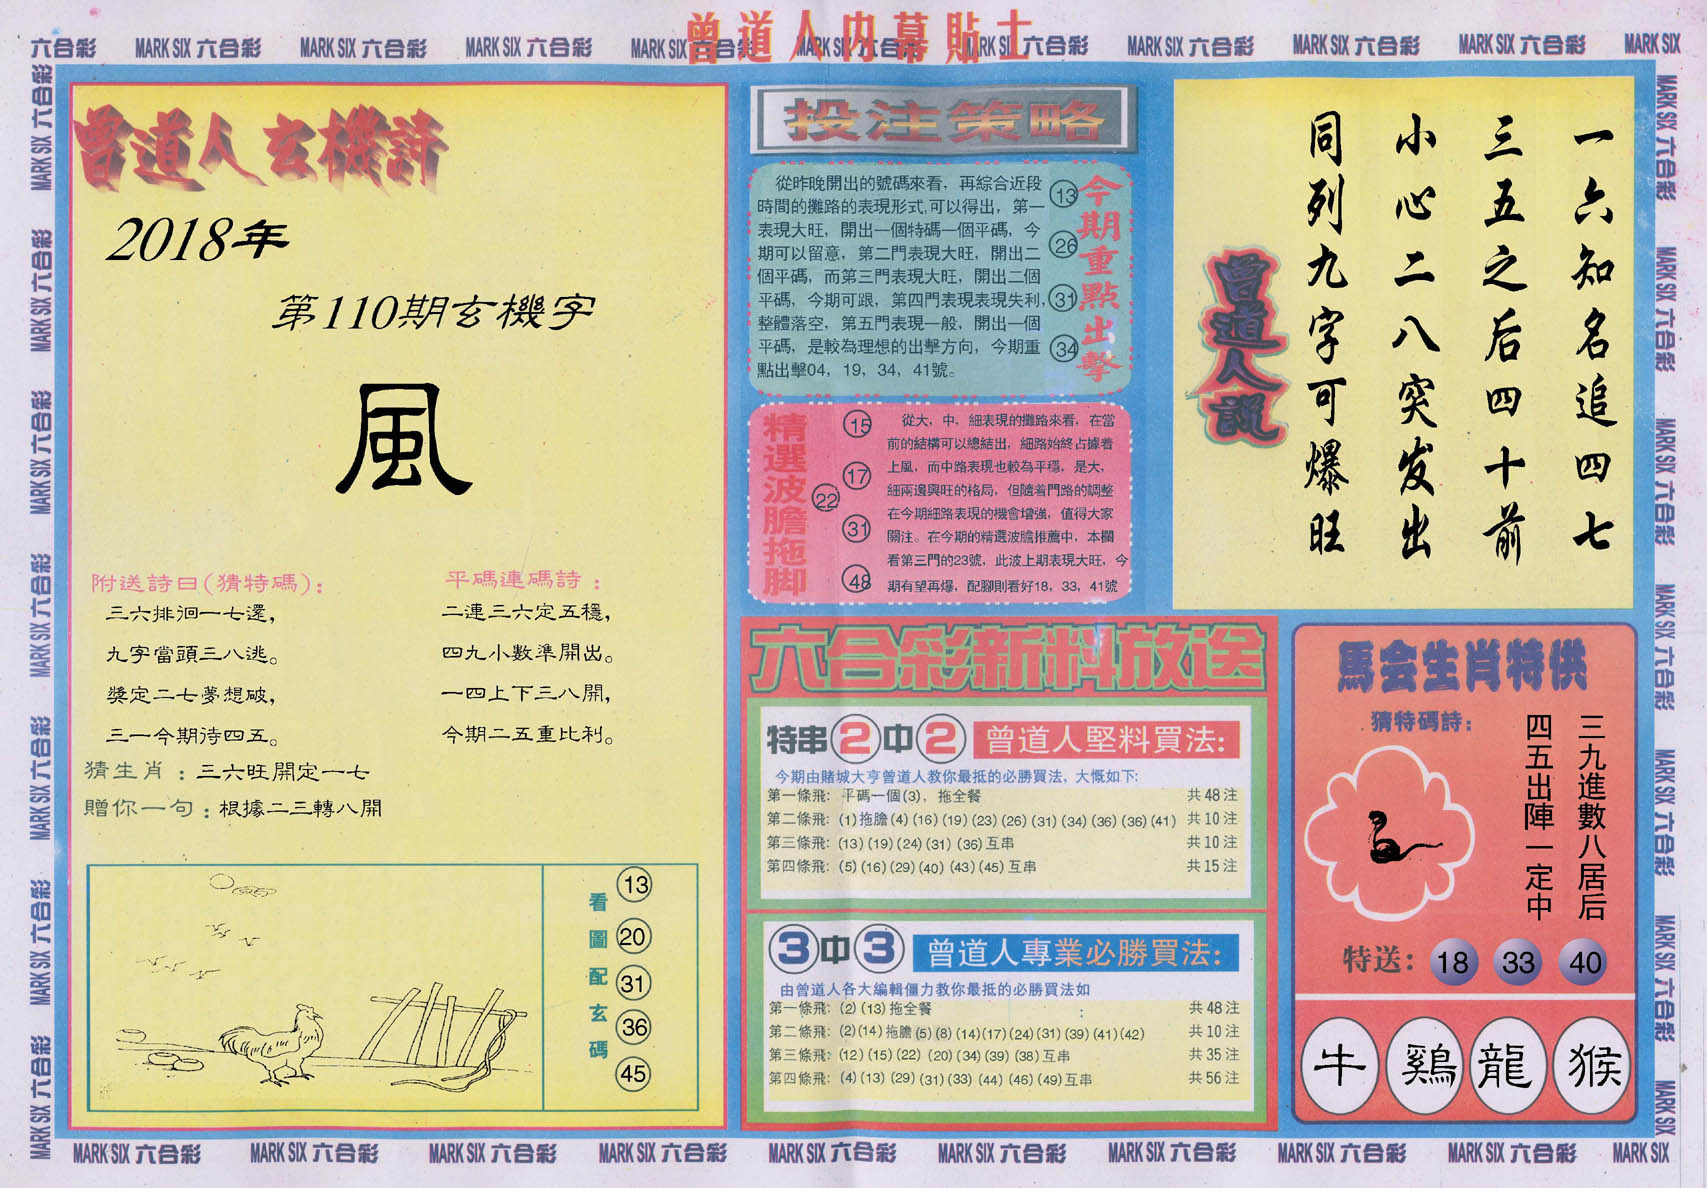 曾道人内幕貼士
六合彩 MARK SIX 六合彩 MARK SIX 六合彩 MARK SIX 六合彩 MARK SIX 六合彩 MARK SIX 六合彩 MARK SIX 六合彩 MARK SIX 六合彩 MARK SIX 六合彩 MARK SIX 六合彩 MARK SIX
曾道人玄機詩
2018年
第110期玄機字
風
附送詩曰(猜特碼):
三六排徊一七還,
九字當頭三八逃。
獎定二七夢想破,
三一今期待四五。
平碼連碼詩:
二連三六定五穩,
四九小數準開出。
一四上下三八開,
今期二五重比利。
猜生肖:三六旺開定一七
贈你一句:根據二三轉八開
看圖配玄碼
13
20
31
36
45
投注策略
從昨晚開出的號碼來看,再綜合近段
時間的攤路的表現形式,可以得出,第一
表現大旺,開出一個特碼一個平碼,今
期可以留意,第二門表現大旺,開出二
個平碼,而第三門表現大旺,開出二個
平碼,今期可跟,第四門表現表現失利,
整體落空,第五門表現一般,開出一個
平碼,是較為理想的出擊方向,今期重
點出擊04,19,34,41號。
13
26
31
34
今期重點出擊
精選波膽拖脚
15
17
22
31
48
從大,中,細表現的攤路來看,在當
前的結構可以總結出,細路始終占據着
上風,而中路表現也較為平穩,是大,
細兩邊興旺的格局,但隨着門路的調整
在今期細路表現的機會增強,值得大家
關注。在今期的精選波膽推薦中,本欄
看第三門的23號,此波上期表現大旺,今
期有望再爆,配腳則看好18,33,41號
六合彩新料放送
特串2中2 曾道人堅料買法:
今期由賭城大亨曾道人教你最抵的必勝買法,大慨如下:
第一條飛: 平碼一個(3),拖全餐 共48注
第二條飛: (1)拖膽(4)(16)(19)(23)(26)(31)(34)(36)(36)(41) 共10注
第三條飛: (13)(19)(24)(31)(36)互串 共10注
第四條飛: (5)(16)(29)(40)(43)(45)互串 共15注
3中3 曾道人專業必勝買法:
由曾道人各大編輯僵力教你最抵的必勝買法如
第一條飛: (2)(13)拖全餐 共48注
第二條飛: (2)(14)拖膽(5)(8)(14)(17)(24)(31)(39)(41)(42) 共10注
第三條飛: (12)(15)(22)(20)(34)(39)(38)互串 共35注
第四條飛: (4)(13)(29)(31)(33)(44)(46)(49)互串 共56注
一六知名追四七
三五之后四十前
小心二八突发出
同列九字可爆旺
曾道人説
馬会生肖特供
猜特碼詩:
三九進數八居后
四五出陣一定中
特送: 18 33 40
牛 鷄 龍 猴
MARK SIX 六合彩 MARK SIX 六合彩 MARK SIX 六合彩 MARK SIX 六合彩 MARK SIX 六合彩 MARK SIX 六合彩 MARK SIX 六合彩 MARK SIX 六合彩 MARK SIX 六合彩 MARK SIX